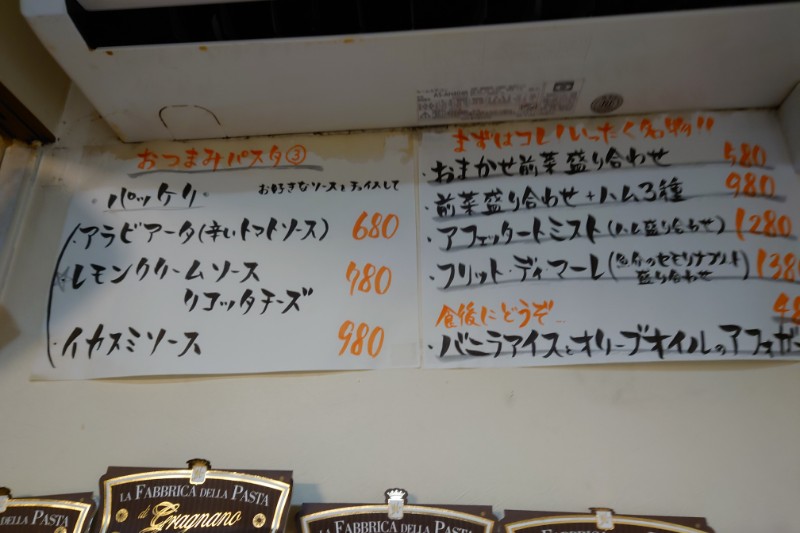 おつまみパスタ③
パッケリ お好きなソースをチョイスして
・アラビアータ(辛いトマトソース) 680
レモンクリームソース 780
リコッタチーズ
・イカスミソース 980
まずはコレ!いったく名物!!
・おまかせ前菜盛り合わせ 580
・前菜盛り合わせ+ハム3種 980
・アフェッタートミスト(ハム盛り合わせ) 1280
・フリット・ディマーレ(魚介のセモリナフリット盛り合わせ) 138
食後にどうぞ… 48
・バニラアイスとオリーブオイルのアフォガー
LA FABBRICA DELLA PASTA
di Gragnano
LA FABBRICA DELLA PASTA
FABBRICA DELLA PASTA
FABBRICA DELLA PASTA